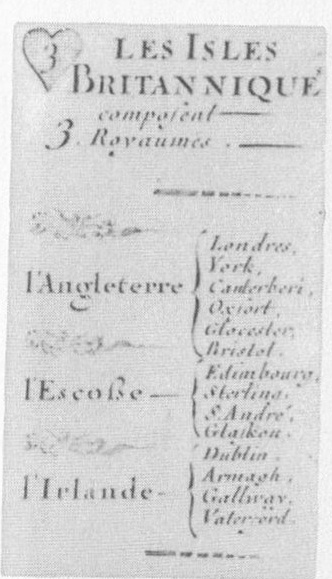 3
LES ISLES
BRITANNIQUE
composent
3. Royaumes.
l'Angleterre
Londres,
York,
Canterberi,
Oxfort,
Glocester,
Bristol.
l'Escosse
Edimbourg,
Sterling.
S. André,
Glaskou.
l'Irlande
Dublin.
Armagh,
Gallway.
Vaterford.